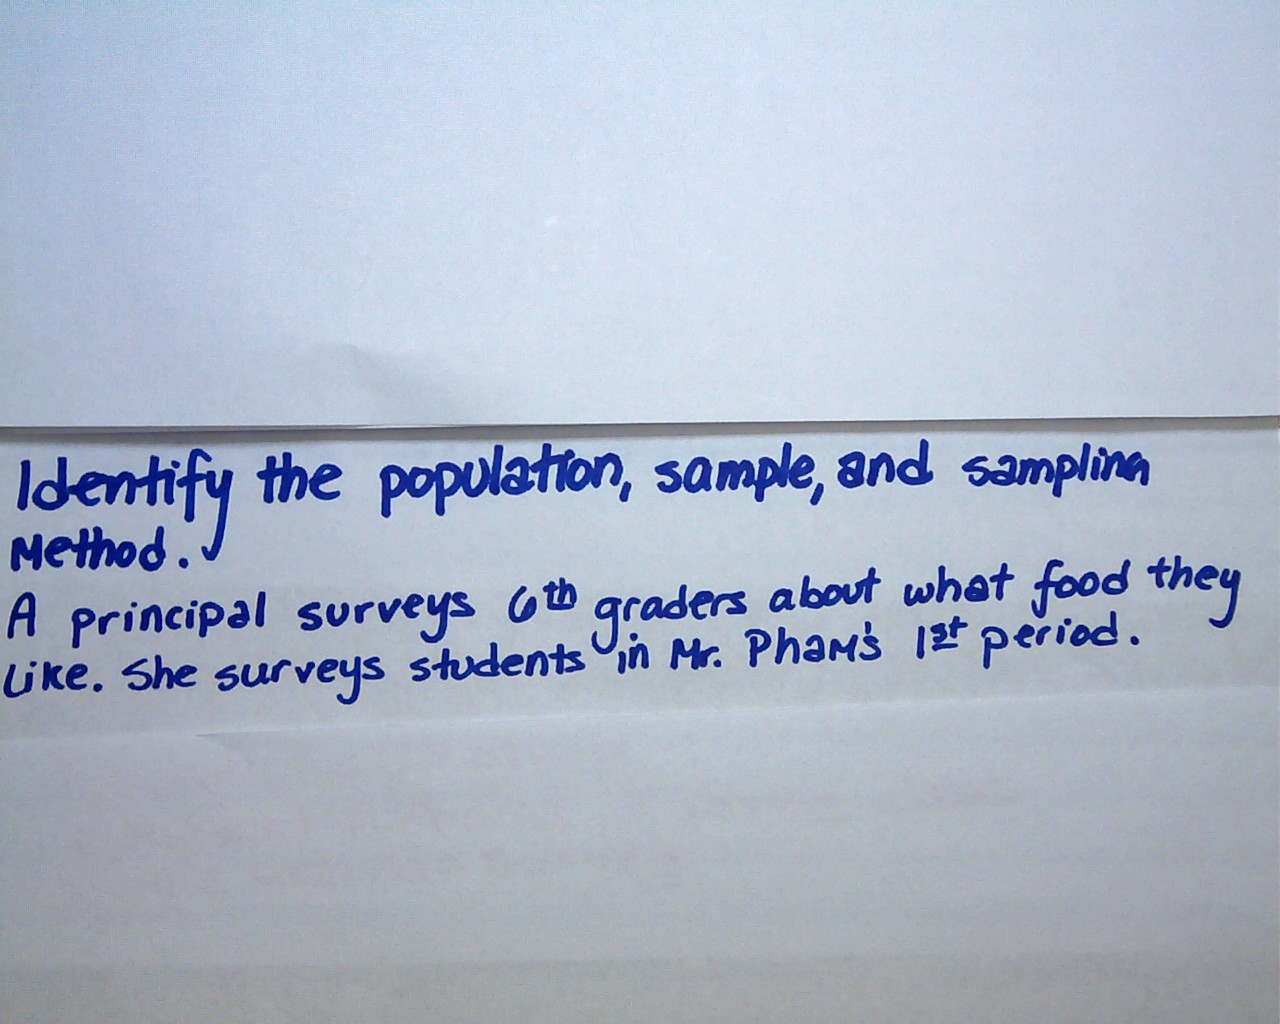 Identify the population, sample, and sampling
Method.
A principal surveys 6th graders about what food they
Like. She surveys students in Mr. Pham's 1st period.